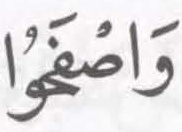 وَاصْفَحُوا